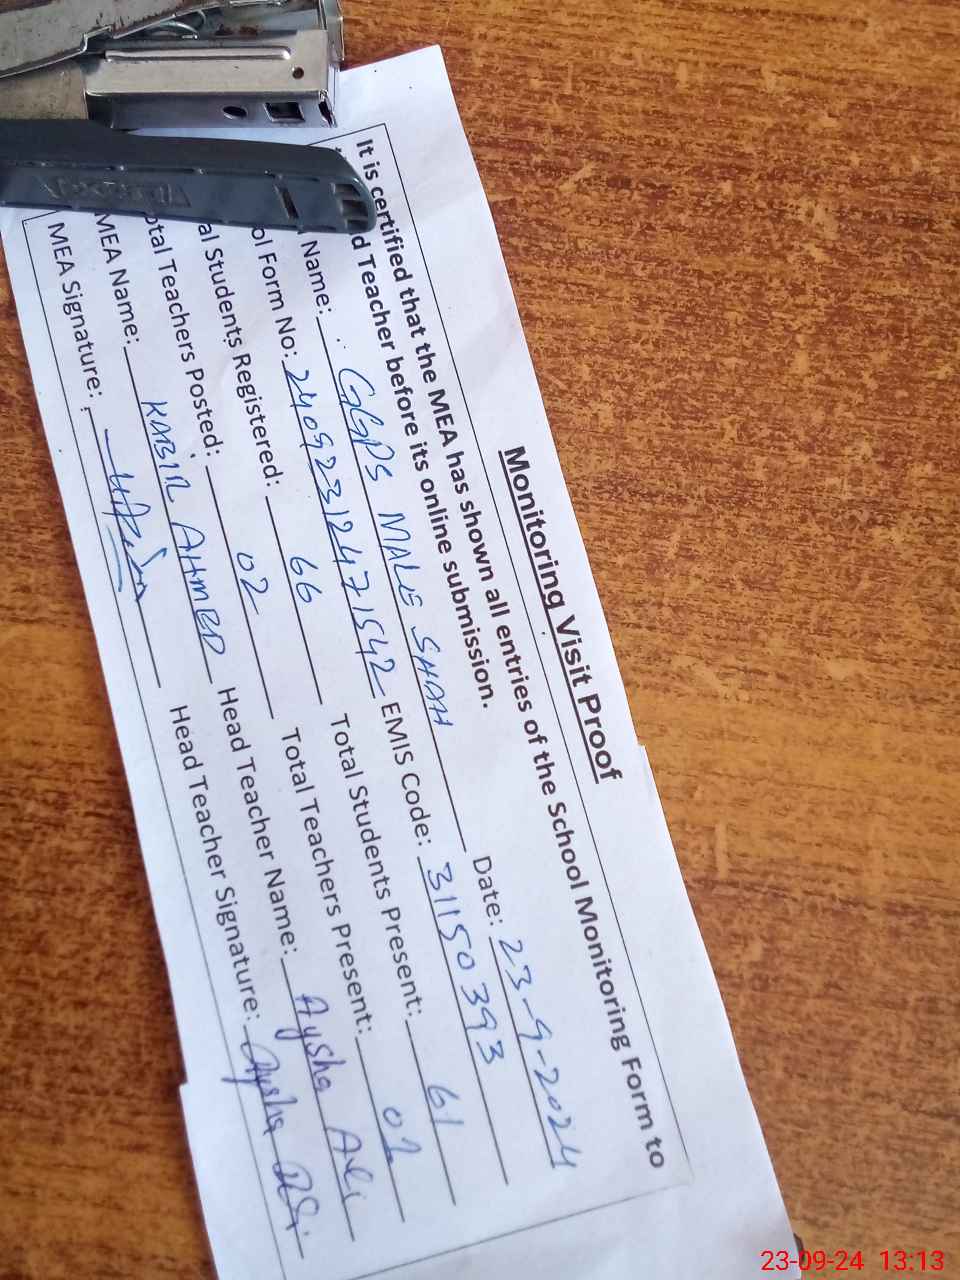 Monitoring Visit Proof
It is certified that the MEA has shown all entries of the School Monitoring Form to
d Teacher before its online submission.
Name: GGPS MALIE SHAH Date: 23-9-2024
ol Form No: 24092312471542 EMIS Code: 31150393
al Students Registered: 66 Total Students Present: 61
otal Teachers Posted: 02 Total Teachers Present: 02
MEA Name: KABIR AHMED Head Teacher Name: Aysha Ali
MEA Signature: Head Teacher Signature: Aysha Ali
23-09-24 13:13